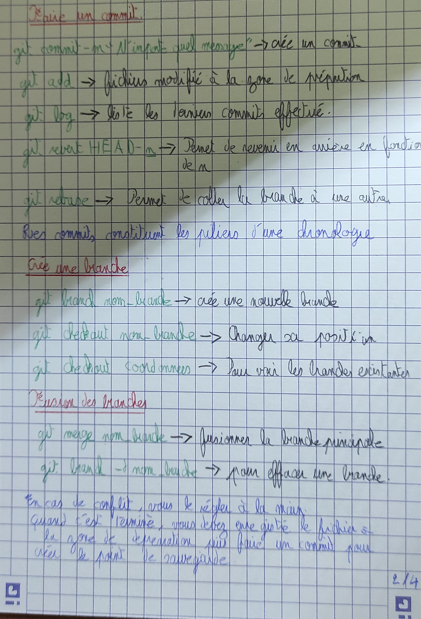 Faire un commit.
git commit -m "N'importe quel message" → crée un commit.
git add → fichiers modifié à la zone de préparation
git log → liste les derniers commits effectué.
git revert HEAD~n → Permet de revenir en arrière en fonction
de n
git rebase → Permet de coller la branche à une autre.
les commits constituent les piliers d'une chronologie
Crée une branche
git branch nom_branche → crée une nouvelle branche
git checkout nom_branche → Changer sa position
git checkout coordonnées → Pour voir les branches existantes
Fusion des branches
git merge nom_branche → fusionner la branche principale
git branch -d nom_branche → pour effacer une branche.
En cas de conflit, vous le régler à la main
Quand c'est terminé, vous devez enregistré le fichier
la zone de préparation puis faire un commit pour
créer le point de sauvegarde
2/4